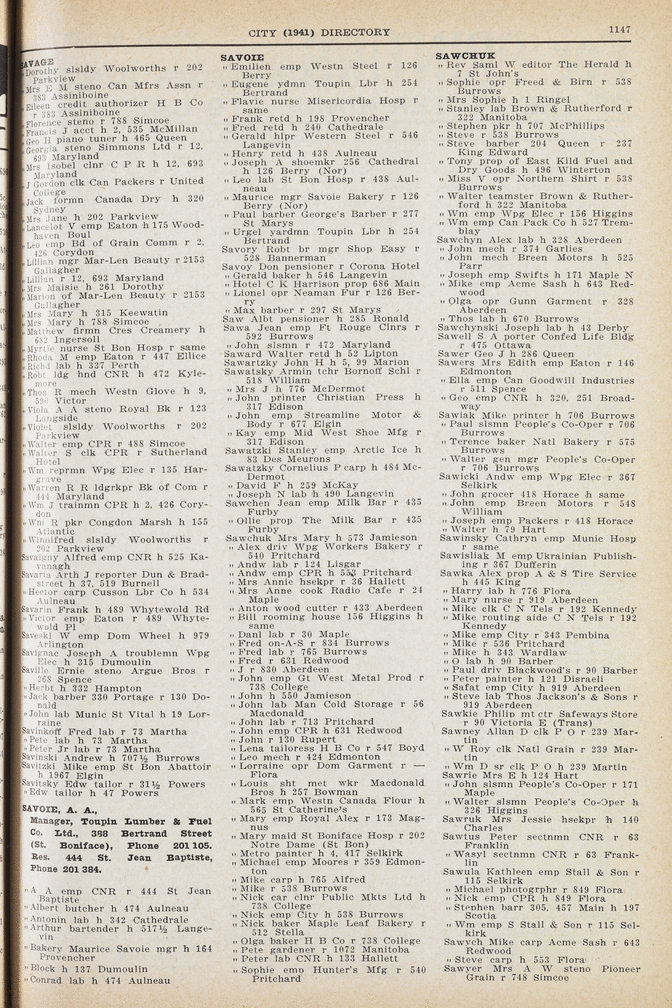 CITY (1941) DIRECTORY
1147
SAVAGE
" Dorothy slsldy Woolworths r 202
Parkview
" Mrs E M steno Can Mfrs Assn r
383 Assiniboine
" Eileen credit authorizer H B Co
r 383 Assiniboine
" Florence steno r 788 Simcoe
" Francis J acct h 2, 535 McMillan
" Geo H piano tuner h 465 Queen
" Georgia steno Simmons Ltd r 12,
693 Maryland
" Mrs Isobel clnr C P R h 12, 693
Maryland
" J Gordon clk Can Packers r United
College
" Jack formn Canada Dry h 320
Sydney
" Mrs Jane h 202 Parkview
" Lancelot V emp Eaton h 175 Wood-
haven Boul
" Leo emp Bd of Grain Comm r 2,
426 Corydon
" Lillian mgr Mar-Len Beauty r 2153
Gallagher
" Lillian r 12, 693 Maryland
" Mrs Maisie h 261 Dorothy
" Marion of Mar-Len Beauty r 2153
Gallagher
" Mrs Mary h 315 Keewatin
" Mrs Mary h 788 Simcoe
" Matthew firmn Cres Creamery h
682 Ingersoll
" Myrtle nurse St Bon Hosp r same
" Rhoda M emp Eaton r 447 Ellice
" Richd lab h 337 Perth
" Robt ldg hnd CNR h 472 Kyle-
more
" Thos R mech Westn Glove h 9,
594 Victor
" Viola A A steno Royal Bk r 123
Langside
" Violet slsldy Woolworths r 202
Parkview
" Walter emp CPR r 488 Simcoe
" Walter S clk CPR r Sutherland
Hotel
" Wm reprmn Wpg Elec r 135 Har-
grave
" Warren R R ldgrkpr Bk of Com r
444 Maryland
" Wm J trainmn CPR h 2, 426 Cory-
don
" Wm R pkr Congdon Marsh h 155
Atlantic
" Winnifred slsldy Woolworths r
202 Parkview
Savaigny Alfred emp CNR h 525 Ka-
vanagh
Savaria Arth J reporter Dun & Brad-
street h 37, 519 Burnell
" Hector carp Cusson Lbr Co h 534
Aulneau
Savarin Frank h 489 Whytewold Rd
" Victor emp Eaton r 489 Whyte-
wold Pl
Saveski W emp Dom Wheel h 979
Arlington
Savignac Joseph A troublemn Wpg
Elec h 315 Dumoulin
Saville Ernie steno Argue Bros r
268 Spence
" Herbt h 332 Hampton
" Jack barber 330 Portage r 130 Do-
nald
" John lab Munic St Vital h 19 Lor-
raine
Savinkoff Fred lab r 73 Martha
" Pete lab h 73 Martha
" Peter Jr lab r 73 Martha
Savinski Andrew h 707½ Burrows
Savitzki Mike emp St Bon Abattoir
h 1967 Elgin
Savitsky Edw tailor r 31½ Powers
" Edw tailor h 47 Powers
SAVOIE, A. A.,
Manager, Toupin Lumber & Fuel
Co. Ltd., 388 Bertrand Street
(St. Boniface), Phone 201 105.
Res. 444 St. Jean Baptiste,
Phone 201 384.
" A A emp CNR r 444 St Jean
Baptiste
" Albert butcher h 474 Aulneau
" Antonin lab h 342 Cathedrale
" Arthur bartender h 517½ Lange-
vin
" Bakery Maurice Savoie mgr h 164
Provencher
" Block h 137 Dumoulin
" Conrad lab h 474 Aulneau
SAVOIE
" Emilien emp Westn Steel r 126
Berry
" Eugene ydmn Toupin Lbr h 254
Bertrand
" Flavie nurse Misericordia Hosp r
same
" Frank retd h 198 Provencher
" Fred retd h 240 Cathedrale
" Gerald hlpr Western Steel r 546
Langevin
" Henry retd h 438 Aulneau
" Joseph A shoemkr 256 Cathedral
h 126 Berry (Nor)
" Leo lab St Bon Hosp r 438 Aul-
neau
" Maurice mgr Savoie Bakery r 126
Berry (Nor)
" Paul barber George's Barber r 277
St Marys
" Urgel yrdmn Toupin Lbr h 254
Bertrand
Savory Robt br mgr Shop Easy r
528 Bannerman
Savoy Don pensioner r Corona Hotel
" Gerald baker h 546 Langevin
" Hotel C K Harrison prop 686 Main
" Lionel opr Neaman Fur r 126 Ber-
ry
" Max barber r 297 St Marys
Saw Albt pensioner h 285 Ronald
Sawa Jean emp Ft Rouge Clnrs r
592 Burrows
" John slsmn r 472 Maryland
Saward Walter retd h 52 Lipton
Sawartzky John H h 5, 99 Marion
Sawatsky Armin tchr Bornoff Schl r
518 William
" Mrs J h 776 McDermot
" John printer Christian Press h
317 Edison
" John emp Streamline Motor &
Body r 677 Elgin
" Kay emp Mid West Shoe Mfg r
317 Edison
Sawatzki Stanley emp Arctic Ice h
83 Des Meurons
Sawatzky Cornelius P carp h 484 Mc-
Dermot
" David F h 259 McKay
" Joseph N lab h 490 Langevin
Sawchen Jean emp Milk Bar r 435
Furby
" Ollie prop The Milk Bar r 435
Furby
Sawchuk Mrs Mary h 573 Jamieson
" Alex driv Wpg Workers Bakery r
540 Pritchard
" Andw lab r 124 Lisgar
" Andw emp CPR h 553 Pritchard
" Mrs Annie hsekpr r 36 Hallett
" Mrs Anne cook Radio Cafe r 24
Maple
" Anton wood cutter r 433 Aberdeen
" Bill rooming house 156 Higgins h
same
" Danl lab r 30 Maple
" Fred on-A-S r 834 Burrows
" Fred lab r 765 Burrows
" Fred r 631 Redwood
" J r 830 Aberdeen
" John emp Gt West Metal Prod r
738 College
" John h 550 Jamieson
" John lab Man Cold Storage r 56
Macdonald
" John lab r 713 Pritchard
" John emp CPR h 631 Redwood
" John r 130 Rupert
" Lena tailoress H B Co r 547 Boyd
" Leo mech r 424 Edmonton
" Lorraine opr Dom Garment r —
Flora
" Louis sht met wkr Macdonald
Bros h 257 Bowman
" Mark emp Westn Canada Flour h
565 St Catherine's
" Mary emp Royal Alex r 173 Mag-
nus
" Mary maid St Boniface Hosp r 202
Notre Dame (St Bon)
" Metro painter h 4, 417 Selkirk
" Michael emp Moores r 359 Edmon-
ton
" Mike carp h 765 Alfred
" Mike r 538 Burrows
" Nick car clnr Public Mkts Ltd h
738 College
" Nick emp City h 538 Burrows
" Nick baker Maple Leaf Bakery r
512 Stella
" Olga baker H B Co r 738 College
" Pete gardener r 1072 Manitoba
" Peter lab CNR h 133 Hallett
" Sophie emp Hunter's Mfg r 540
Pritchard
SAWCHUK
" Rev Saml W editor The Herald h
7 St John's
" Sophie opr Freed & Birn r 538
Burrows
" Mrs Sophie h 1 Ringel
" Stanley lab Brown & Rutherford r
322 Manitoba
" Stephen pkr h 707 McPhillips
" Steve r 538 Burrows
" Steve barber 204 Queen r 237
King Edward
" Tony prop of East Kild Fuel and
Dry Goods h 496 Winterton
" Miss V opr Northern Shirt r 538
Burrows
" Walter teamster Brown & Ruther-
ford h 322 Manitoba
" Wm emp Wpg Elec r 156 Higgins
" Wm emp Can Pack Co h 527 Trem-
blay
Sawchyn Alex lab h 328 Aberdeen
" John mech r 374 Garlies
" John mech Breen Motors h 525
Parr
" Joseph emp Swifts h 171 Maple N
" Mike emp Acme Sash h 643 Red-
wood
" Olga opr Gunn Garment r 328
Aberdeen
" Thos lab h 670 Burrows
Sawchynski Joseph lab h 43 Derby
Sawell S A porter Confed Life Bldg
r 475 Ottawa
Sawer Geo J h 286 Queen
Sawers Mrs Edith emp Eaton r 146
Edmonton
" Ella emp Can Goodwill Industries
r 511 Spence
" Geo emp CNR h 320, 251 Broad-
way
Sawiak Mike printer h 706 Burrows
" Paul slsmn People's Co-Oper r 706
Burrows
" Terence baker Natl Bakery r 575
Burrows
" Walter gen mgr People's Co-Oper
r 706 Burrows
Sawicki Andw emp Wpg Elec r 367
Selkirk
" John grocer 418 Horace h same
" John emp Breen Motors r 548
William
" Joseph emp Packers r 418 Horace
" Walter h 79 Hart
Sawinsky Cathryn emp Munic Hosp
r same
Sawisliak M emp Ukrainian Publish-
ing r 367 Dufferin
Sawka Alex prop A & S Tire Service
h 445 King
" Harry lab h 776 Flora
" Mary nurse r 919 Aberdeen
" Mike clk C N Tels r 192 Kennedy
" Mike routing aide C N Tels r 192
Kennedy
" Mike emp City r 343 Pembina
" Mike r 536 Pritchard
" Mike h 343 Wardlaw
" O lab h 90 Barber
" Paul driv Blackwood's r 90 Barber
" Peter painter h 121 Disraeli
" Safat emp City h 919 Aberdeen
" Steve lab Thos Jackson's & Sons r
919 Aberdeen
Sawkie Philip mt ctr Safeways Store
r 90 Victoria E (Trans)
Sawney Allan D clk P O r 239 Mar-
tin
" W Roy clk Natl Grain r 239 Mar-
tin
" Wm D sr clk P O h 239 Martin
Sawrie Mrs E h 124 Hart
" John slsmn People's Co-Oper r 171
Maple
" Walter slsmn People's Co-Oper h
326 Higgins
Sawruk Mrs Jessie hsekpr h 140
Charles
Sawtus Peter sectnmn CNR r 63
Franklin
" Wasyl sectnmn CNR r 63 Frank-
lin
Sawula Kathleen emp Stall & Son r
115 Selkirk
" Michael photogrphr r 849 Flora
" Nick emp CPR h 849 Flora
" Stephen barr 305, 457 Main h 197
Scotia
" Wm emp S Stall & Son r 115 Sel-
kirk
Sawych Mike carp Acme Sash r 643
Redwood
" Steve carp h 553 Flora
Sawyer Mrs A W steno Pioneer
Grain r 748 Simcoe